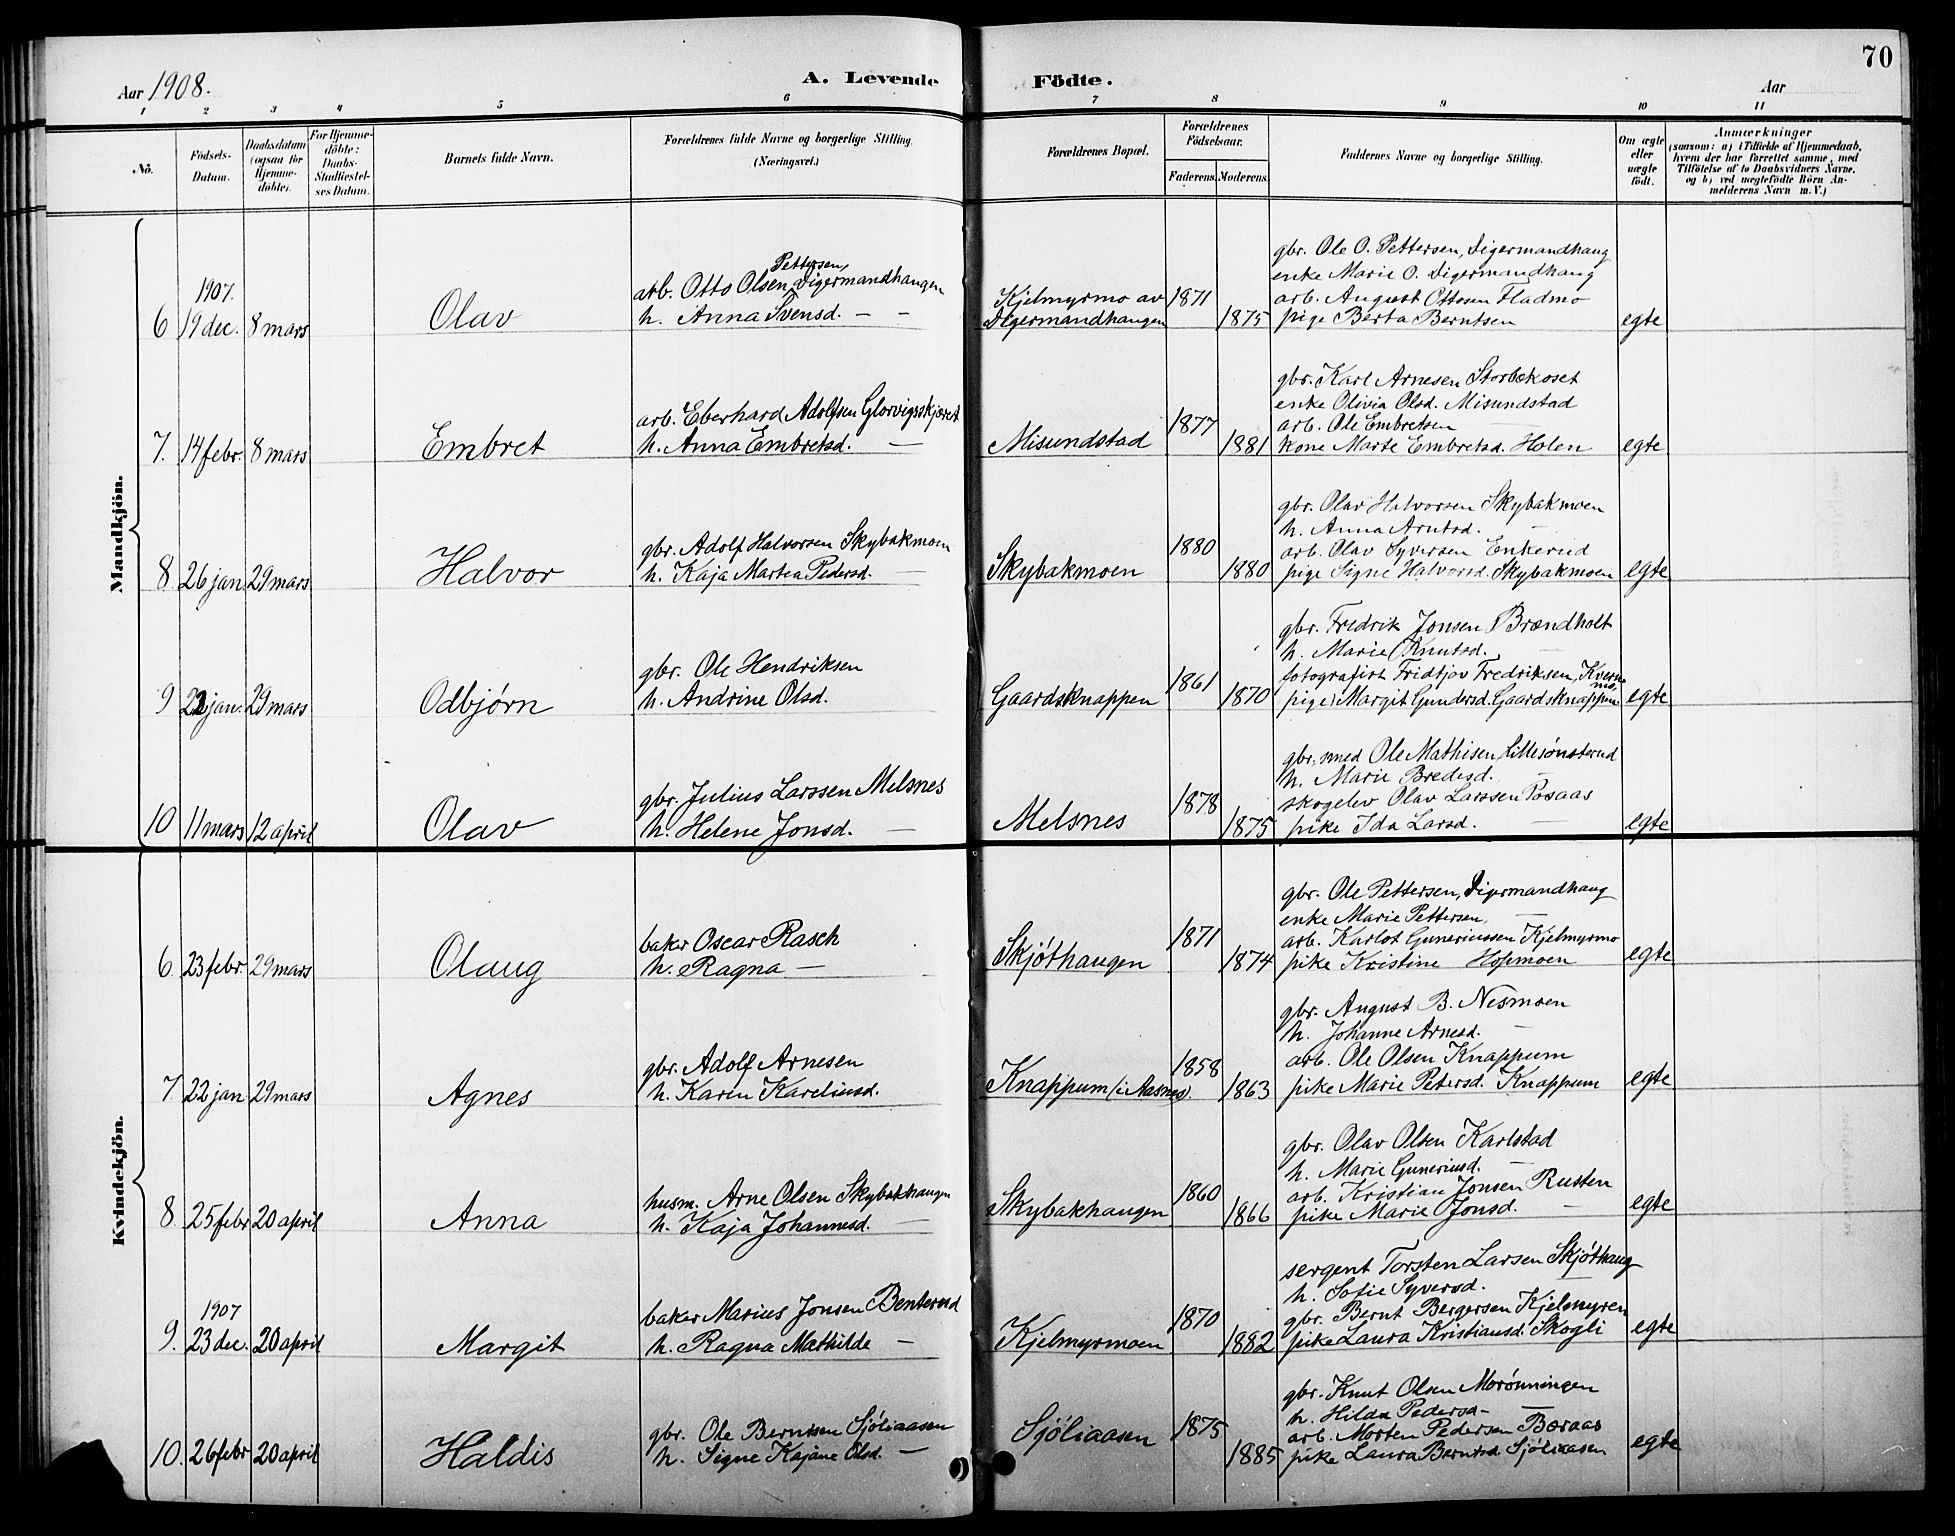 Aar 1908.
A. Levende Födte.
Aar
70
1 2 3 4 5 6 7 8 9 10 11
Nö.
Födsels-Datum.
Daabsdatum (ogsaa for Hjemme-döbte).
For Hjemme-döbte: Daabs-Stadfæstel-ses Datum.
Barnets fulde Navn.
Forældrenes fulde Navne og borgerlige Stilling. (Næringsvei.)
Forældrenes Bopæl.
Forældrenes Födselsaar.
Faderens. Moderens.
Faddernes Navne og borgerlige Stilling.
Om ægte eller uægte födt.
Anmærkninger
(saasom: a) i Tilfælde af Hjemmedaab, hvem der har forrettet samme, med Tilföielse af to Daabsvidners Navne, og b) ved uægtefödte Börn An-melderens Navn m. V.)
Mandkjön.
6 1907. 19 dec. 8 mars
Olav
arb. Otto Olsen Pettersen, Digermandhangen
h. Anna Svensd. — —
Kjelmyrmo av
Digermandhaugen
1871
1875
gbr. Ole O. Pettersen, Digermandhaug
enke Marie O. Digermandhaug
arb. August Ottosen Fladmo
pige Berta Berntsen
egte
7. 14 febr. 8 mars
Embret
arb. Eberhard Adolfsen Glorvigsskjæret
h. Anna Embretsd. —
Misundstad
1877
1881
gbr. Karl Arnesen Storbekoset
enke Olivia Olsd. Misundstad
arb. Ole Embretsen —
kone Marte Embretsd. Holen
egte
8 26 jan. 29 mars
Halvor
gbr. Adolf Halvorsen Skybakmoen
h. Kaja Martea Pedersd. —
Skybakmoen
1880
1880
gbr. Olav Halvorsen Skybakmoen
h. Anna Arntsd. —
arb. Olav Syversen Enkerud
pige Signe Halvorsd. Skybakmoen
egte
9 22 jan. 29 mars
Odbjørn
gbr. Ole Hendriksen
h. Andrine Olsd.
Gaardsknappen
1861
1870
gbr. Fredrik Jonsen Brændholt
h. Marie Knutsd. —
fotografist Fridtjov Fredriksen, Kvernmo,
pige Margit Gundersd. Gaardsknappen
egte
10 11 mars 12 april
Olav
gbr. Julius Larssen Melsnes
h. Helene Jonsd. —
Melsnes
1878
1875
gbr., smed Ole Mathisen Lillesønsterud
h. Marie Bredesd. —
skogelev Olav Larssen Rosaas
pike Ida Larsd. —
egte
Kvindekjön.
6 23 febr. 29 mars
Olaug
baker Oscar Rasch
h. Ragna —
Skjøthaugen
1871
1874
gbr. Ole Pettersen, Digermandhaug
enke Marie Pettersen, —
arb. Karlot Guneriussen Kjelmyrmo
pike Kristine Hofmoen
egte
7 22 jan 29 mars
Agnes
gbr. Adolf Arnesen
h. Karen Kareliusd.
Knappum (i Aasnes).
1858
1863
gbr. August B. Nesmoen
h. Johanne Arnesd. —
arb. Ole Olsen Knappum
pike Marie Petersd. Knappum
egte
8 25 febr 20 april
Anna
husm. Arne Olsen Skybakhaugen
h. Kaja Johannesd. —
Skybakhaugen
1860
1866
gbr. Olav Olsen Karlstad
h. Marie Guneriusd. —
arb. Kristian Jonsen Rusten
pike Marie Jonsd. —
egte
9. 1907 23 dec. 20 april
Margit
baker Marius Jonsen Benterud
h. Ragna Mathilde —
Kjelmyrmoen
1870
1882
sergent Torsten Larsen Skjøthaug
h. Sofie Syversd. —
gbr. Bernt Bergersen Kjelmyren
pike Laura Kristiansd. Skogli
egte
10. 26 febr 20 april
Haldis
gbr. Ole Berntsen Sjøliaasen
h. Signe Kajane Olsd. —
Sjøliaasen
1875
1885
gbr. Knut Olsen Morønningen
h. Hilda Pedersd —
arb. Morten Pedersen Bæraas
pike Laura Berntsd. Sjøliaasen
egte